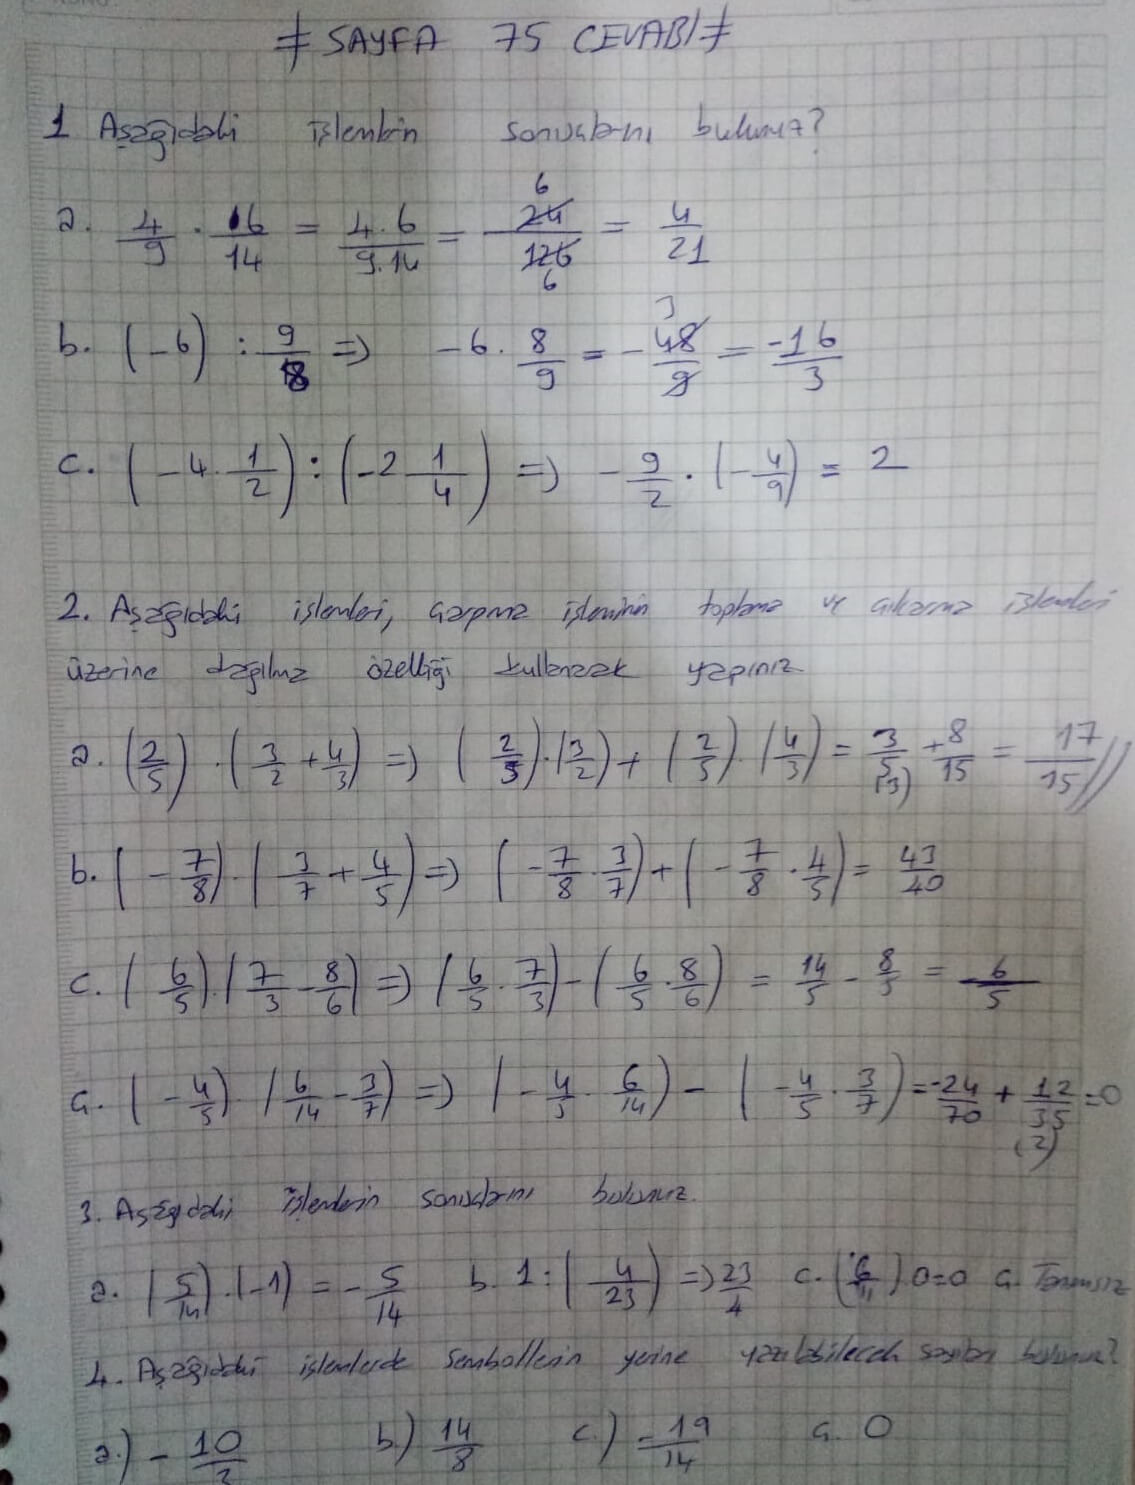 ≠ SAYFA 75 CEVABI ≠
1 Aşağıdaki işlemlerin sonuçlarını bulunuz?
a. 4/9 · 16/14 = 4.6/9.14 = 24/126 6 6 = 4/21
b. (-6) : 9/8 => -6 · 8/9 = -48/9 3 = -16/3
c. (-4 · 1/2) : (-2 1/4) => -9/2 · (-4/9) = 2
2. Aşağıdaki işlemleri, çarpma işleminin toplama ve çıkarma işlemleri
üzerine dağılma özelliği kullanarak yapınız
a. (2/5) · (3/2 + 4/3) => (2/5) · (3/2) + (2/5) · (4/3) = 3/5 (3) + 8/15 = 17/15 //
b. (-7/8) · (3/7 + 4/5) => (-7/8 · 3/7) + (-7/8 · 4/5) = 43/40
c. (6/5) · (7/3 - 8/6) => (6/5 · 7/3) - (6/5 · 8/6) = 14/5 - 8/5 = 6/5
ç. (-4/5) · (6/14 - 3/7) => (-4/5 · 6/14) - (-4/5 · 3/7) = -24/70 + 12/35 (2) = 0
3. Aşağıdaki işlemlerin sonuçlarını bulunuz.
a. (5/14) · (-1) = -5/14 b. 1 : (4/23) => 23/4 c. (6/11) · 0 = 0 ç. Tanımsız
4. Aşağıdaki işlemlerde sembollerin yerine yazılabilecek sayıları bulunuz?
a.) -10/3 b.) 14/8 c.) -19/14 ç. 0